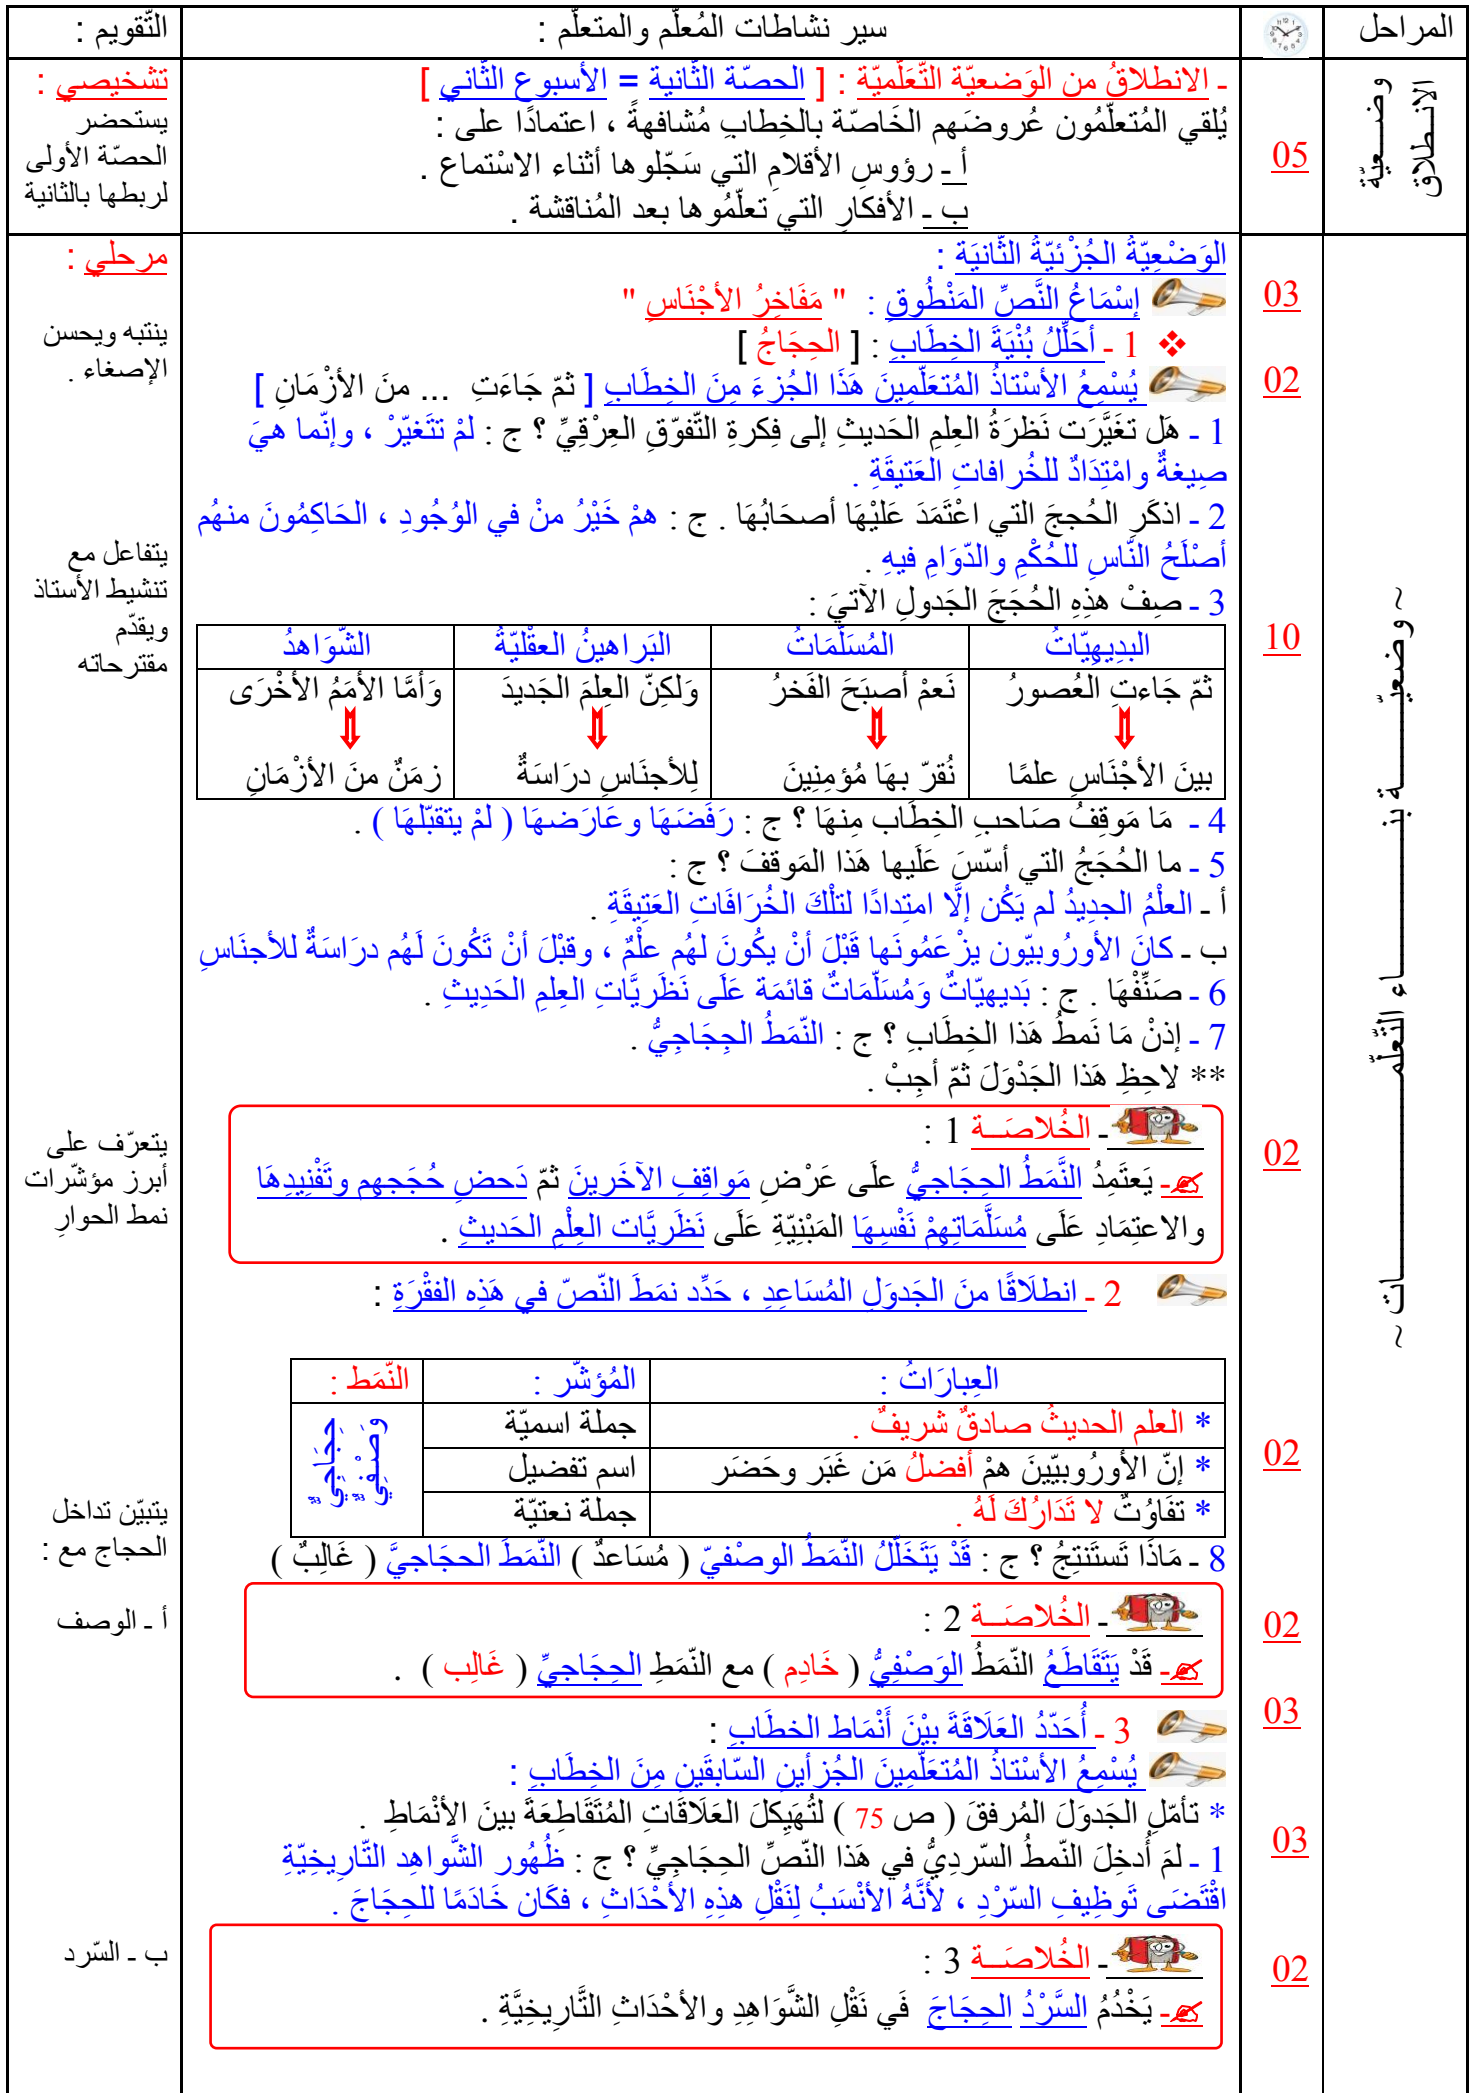 المراحل
سير نشاطات المُعلّم والمتعلّم :
التّقويم :
وضــــعيّة
الانـــطلاق
05
ـ الانطلاقُ من الوَضعيّة التّعَلّميّة : [ الحصّة الثّانية = الأسبوع الثّاني ]
يُلقي المُتعلّمُون عُروضَهم الخَاصّة بالخِطابِ مُشافهةً ، اعتمادًا على :
أ ـ رؤوسِ الأقلامِ التي سَجّلوها أثناء الاسْتماع .
ب ـ الأفكارِ التي تعلّمُوها بعد المُناقشة .
تشخيصي :
يستحضر
الحصّة الأولى
لربطها بالثانية
~ وضعيّـــــــة بنـــــــــــاء التّعلّمــــــــــــــــات ~
03
02
10
02
02
02
03
03
02
الوَضْعِيّةُ الجُزْئيّةُ الثّانيَة :
إسْمَاعُ النَّصِّ المَنْطُوقِ : " مَفَاخِرُ الأجْنَاسِ "
❖ 1 ـ أحَلِّلُ بُنْيَةَ الخِطَابِ : [ الحِجَاجُ ]
يُسْمِعُ الأسْتاذُ المُتعَلّمِينَ هَذَا الجُزءَ مِنَ الخِطَابِ [ ثمّ جَاءَتِ ... منَ الأزْمَانِ ]
1 ـ هَل تغَيَّرَت نَظرَةُ العِلمِ الحَديثِ إلى فِكرةِ التّفوّقِ العِرْقِيِّ ؟ ج : لمْ تتَغيّرْ ، وإنّما هيَ
صِيغةٌ وامْتِدَادٌ للخُرافاتِ العَتيقَةِ .
2 ـ اذكَرِ الحُججَ التي اعْتَمَدَ عَلَيْهَا أصحَابُهَا . ج : همْ خَيْرُ منْ في الوُجُودِ ، الحَاكِمُونَ منهُم
أصْلَحُ النّاسِ للحُكْمِ والدّوَامِ فيهِ .
3 ـ صِفْ هذِهِ الحُجَجَ الجَدولِ الآتيَ :
البدِيهِيّاتُ المُسَلّمَاتُ البَراهينُ العقْليّةُ الشّوَاهدُ
ثمّ جَاءتِ العُصورُ نَعمْ أصبَحَ الفَخرُ وَلكِنّ العِلمَ الجَديدَ وَأمَّا الأمَمُ الأخْرَى
بينَ الأجْنَاسِ علمًا نُقرّ بهَا مُؤمِنِينَ لِلأجنَاسِ درَاسَةٌ زمَنٌ منَ الأزْمَانِ
4 ـ مَا مَوقِفُ صَاحبِ الخِطَاب مِنهَا ؟ ج : رَفَضَهَا وعَارَضهَا ( لمْ يتقبّلهَا ) .
5 ـ ما الحُجَجُ التي أسّسَ عَلَيها هَذا المَوقفَ ؟ ج :
أ ـ العلْمُ الجدِيدُ لم يَكُن إلَّا امتِدادًا لتلْكَ الخُرَافَاتِ العَتِيقَةِ .
ب ـ كانَ الأورُوبيّون يزْعَمُونَها قَبْلَ أنْ يكُونَ لهُم علْمٌ ، وقبْلَ أنْ تَكُونَ لَهُم درَاسَةٌ للأجنَاسِ
6 ـ صَنِّفْهَا . ج : بَديهيّاتٌ وَمُسَلّمَاتٌ قائمَة عَلَى نَظَريَّاتِ العِلمِ الحَدِيثِ .
7 ـ إذنْ مَا نَمطُ هَذا الخِطَابِ ؟ ج : النّمَطُ الحِجَاجِيُّ .
** لاحِظِ هَذا الجَدْوَلَ ثمّ أجِبْ .
ـ الخُلاصَـــة 1 :
ـ يَعتَمِدُ النَّمَطُ الحِجَاجيُّ علَى عَرْضِ مَواقِفِ الآخَرينَ ثمّ دَحضِ حُجَجهِم وتَفْنِيدِهَا
والاعتِمَادِ عَلَى مُسَلَّمَاتِهِمْ نَفْسِهَا المَبْنِيّةِ عَلَى نَظَريَّات العِلْمِ الحَديثِ .
2 ـ انطلَاقًا منَ الجَدوَلِ المُسَاعِدِ ، حَدِّد نمَطَ النّصّ في هَذِه الفقْرَةِ :
العِبارَاتُ : المُؤشّر : النّمَط :
* العلم الحديثُ صادقٌ شريفٌ . جملة اسميّة
* إنّ الأورُوبيّينَ همْ أفضلُ مَن غَبَر وحَضَر اسم تفضيل
* تفَاوُتٌ لا تَدَارُكَ لَهُ . جملة نعتيّة
حِجَاجِيٌّ
وَصْفِيٌّ
8 ـ مَاذَا تَستَنتِجُ ؟ ج : قَدْ يَتَخَلّلُ النّمَطُ الوصْفيّ ( مُسَاعدٌ ) النّمَطَ الحجَاجيَّ ( غَالِبٌ )
ـ الخُلاصَـــة 2 :
ـ قَدْ يَتَقَاطَعُ النّمَطُ الوَصْفِيُّ ( خَادِم ) مع النّمَطِ الحِجَاجيِّ ( غَالِب ) .
3 ـ أُحَدّدُ العَلَاقَةَ بيْنَ أَنْمَاط الخطَابِ :
يُسْمِعُ الأسْتاذُ المُتعَلّمِينَ الجُزأينِ السّابقَينِ مِنَ الخِطَابِ :
* تأمّلِ الجَدوَلَ المُرفقَ ( ص 75 ) لتُهَيكلَ العَلَاقَاتِ المُتَقَاطِعَةَ بينَ الأنْمَاطِ .
1 ـ لمَ أُدخِلَ النّمطُ السّردِيُّ في هَذا النّصِّ الحِجَاجِيِّ ؟ ج : ظُهُور الشَّواهِد التّاريخِيّةِ
اقْتَضَى تَوظِيفِ السّرْدِ ، لأنَّهُ الأنْسَبُ لِنَقْلِ هذِهِ الأحْدَاثِ ، فكَان خَادَمًا للحِجَاجَ .
ـ الخُلاصَـــة 3 :
ـ يَخْدُمُ السَّرْدُ الحِجَاجَ فَي نَقْلِ الشَّوَاهِدِ والأحْدَاثِ التَّاريخِيَّةِ .
مرحلي :
ينتبه ويحسن
الإصغاء .
يتفاعل مع
تنشيط الأستاذ
ويقدّم
مقترحاته
يتعرّف على
أبرز مؤشّرات
نمط الحوارِ
يتبيّن تداخل
الحجاج مع :
أ ـ الوصف
ب ـ السّرد